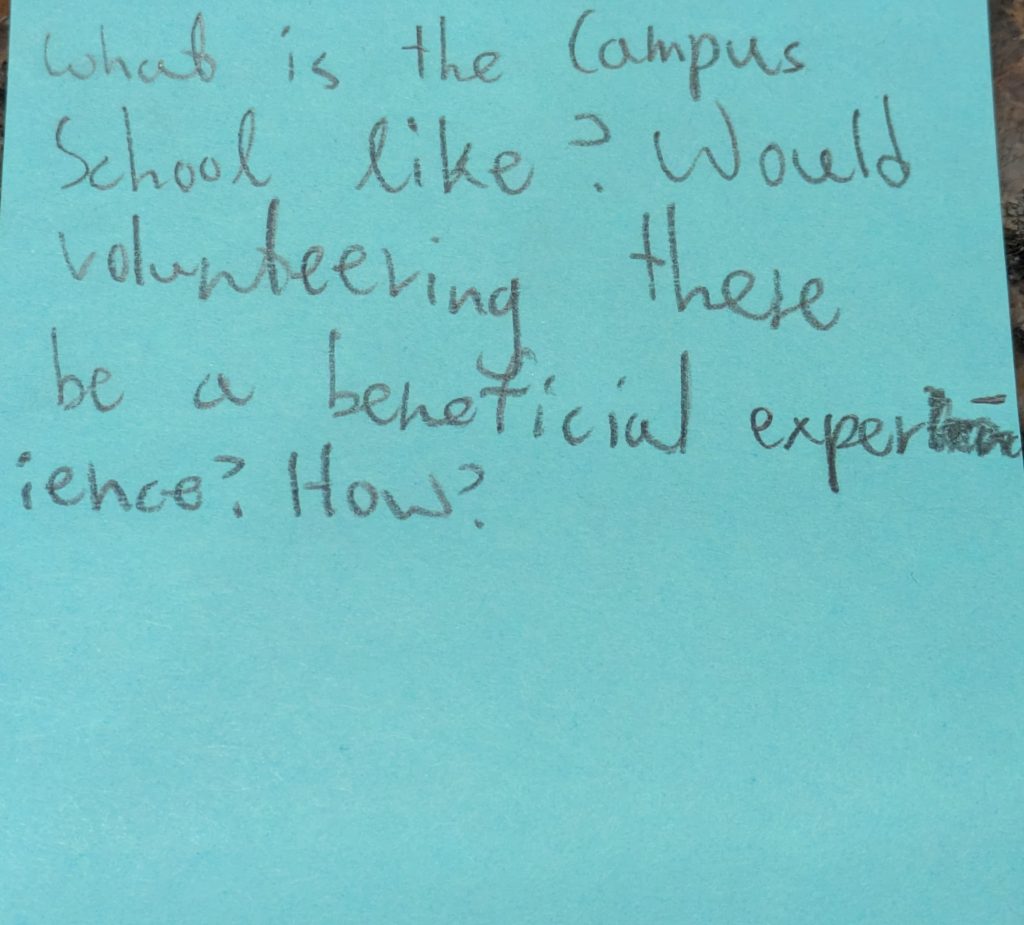 What is the Campus
School like? Would
volunteering there
be a beneficial exper
ience? How?